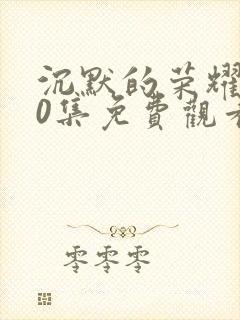 沉默的荣耀
0集免費觀看
零零零